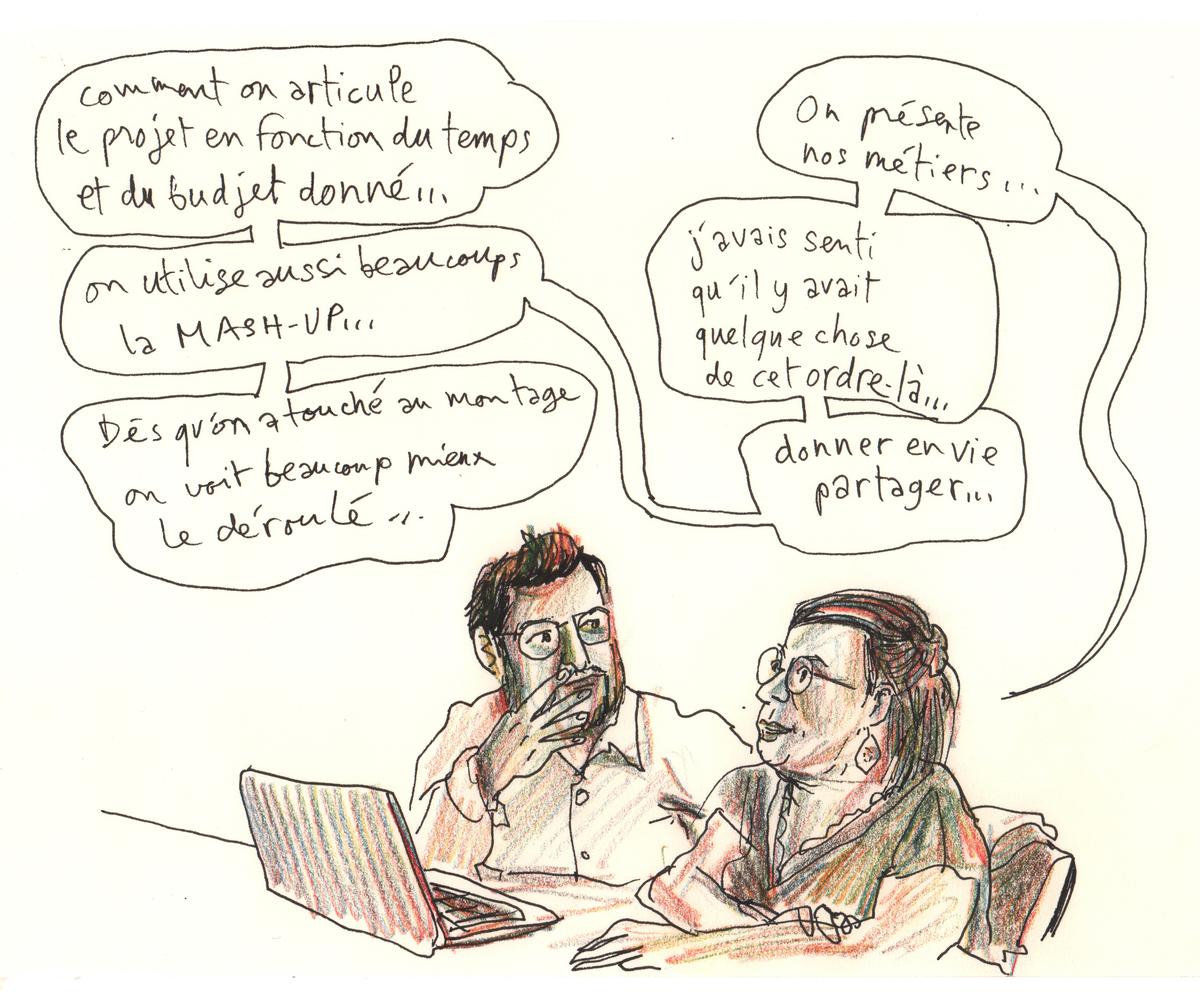 comment on articule
le projet en fonction du temps
et du budjet donné...
on utilise aussi beaucoups
la MASH-UP...
Dès qu'on a touché au montage
on voit beaucoup mieux
le déroulé...
On présente
nos métiers...
j'avais senti
qu'il y avait
quelque chose
de cet ordre-là...
donner envie
partager...